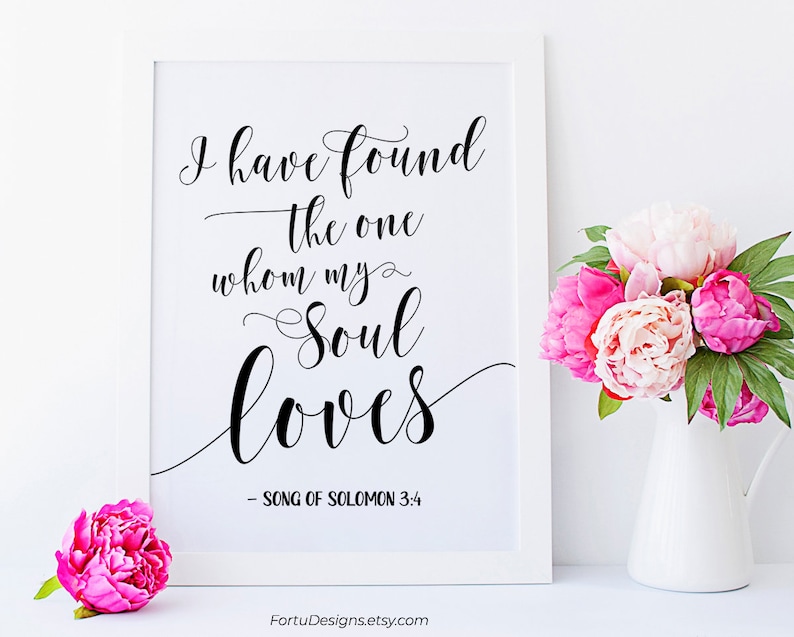 I have found
the one
whom my
Soul
loves
– SONG OF SOLOMON 3:4
FortuDesigns.etsy.com